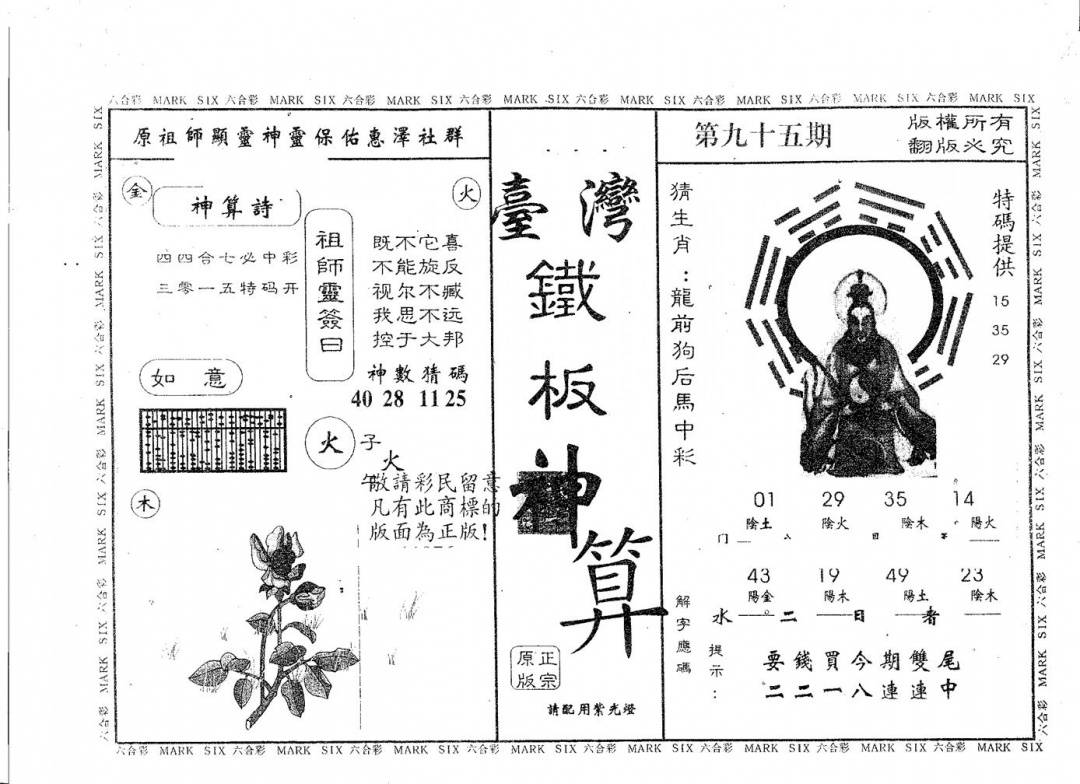 六合彩 MARK SIX 六合彩 MARK SIX 六合彩 MARK SIX 六合彩 MARK SIX 六合彩 MARK SIX 六合彩 MARK SIX 六合彩 MARK SIX 六合彩 MARK SIX
原祖師顯靈神靈保佑惠澤社群
金
神算詩
火
四四合七必中彩
三零一五特码开
祖師靈簽曰
既不它喜
不能旋反
视尔不臧
我思不远
控于大邦
神數猜碼
40 28 11 25
如意
火
子
火
午
敬請彩民留意
凡有此商標的
版面為正版!
木
臺灣
鐵
板
神
算
正宗
原版
請配用紫光燈
第九十五期
版權所有
翻版必究
猜生肖:龍前狗后馬中彩
特碼提供
15
35
29
01 29 35 14
陰土 陰火 陰木 陽火
43 19 49 23
陽金 陽木 陽土 陰木
水 二 日 者
解字應碼
提示:
要錢買今期雙尾
二二一八連連中
六合彩 MARK SIX 六合彩 MARK SIX 六合彩 MARK SIX 六合彩 MARK SIX 六合彩 MARK SIX 六合彩 MARK SIX 六合彩 MARK SIX 六合彩 MARK SIX